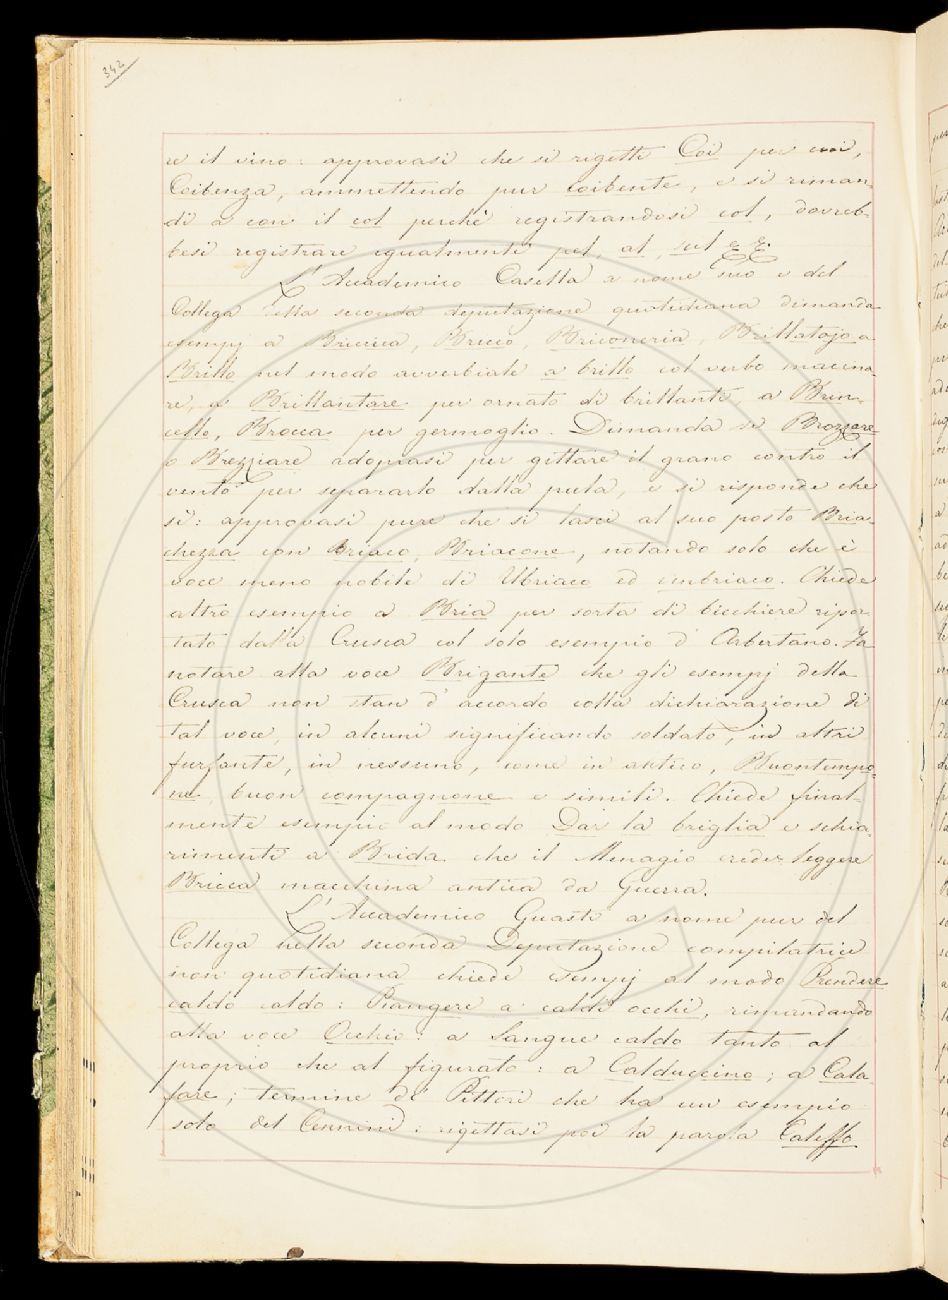 342
re il vino: approvasi che si rigetti Coi per
Coibenza, ammettendo pur coibente, e si riman-
di a con il col perchè registrandosi col, dovreb-
besi registrare egualmente pel, al, sul &. &.
L'Accademico Casella a nome suo e del
Collega della seconda deputazione quotidiana dimanda
esempj a Briccica, Bricco, Briconeria, Brillatojo a
Brillo nel modo avverbiale a brillo col verbo macina-
re, a Brillantare per ornato di brillanti a Brin-
cello, Brocca per germoglio. Dimanda se Brozzare
o Brezziare adoprasi per gittare il grano contro il
vento per separarlo dalla pula, e si risponde che
sì: approvasi pure che si lasci al suo posto Bria-
chezza con Briaco, Briacone, notando solo che è
voce meno nobile di Ubriaco ed imbriaco. Chiede
altro esempio a Bria per sorta di bicchiere ripor-
tato dalla Crusca col solo esempio d'Arbertano. Fa
notare alla voce Brigante che gli esempj della
Crusca non stan d'accordo colla dichiarazione di
tal voce, in alcuni significando soldato, in altri
furfante, in nessuno, come in antico, Buontempo-
ne, buon compagnone e simili. Chiede final-
mente esempio al modo Dar la briglia e schia-
rimenti a Brida che il Menagio crede leggere
Bricca macchina antica da Guerra.
L'Accademico Guasti a nome pur del
Collega nella seconda Deputazione compilatrice
non quotidiana chiede esempj al modo Prendere
caldo caldo: Piangere a caldi occhi, rimandando
alla voce Occhio: a Sangue caldo tanto al
proprio che al figurato: a Calduccino; a Cala-
fare; termine de' Pittori che ha un esempio
solo del Cennini: rigettasi poi la parola Caleffo